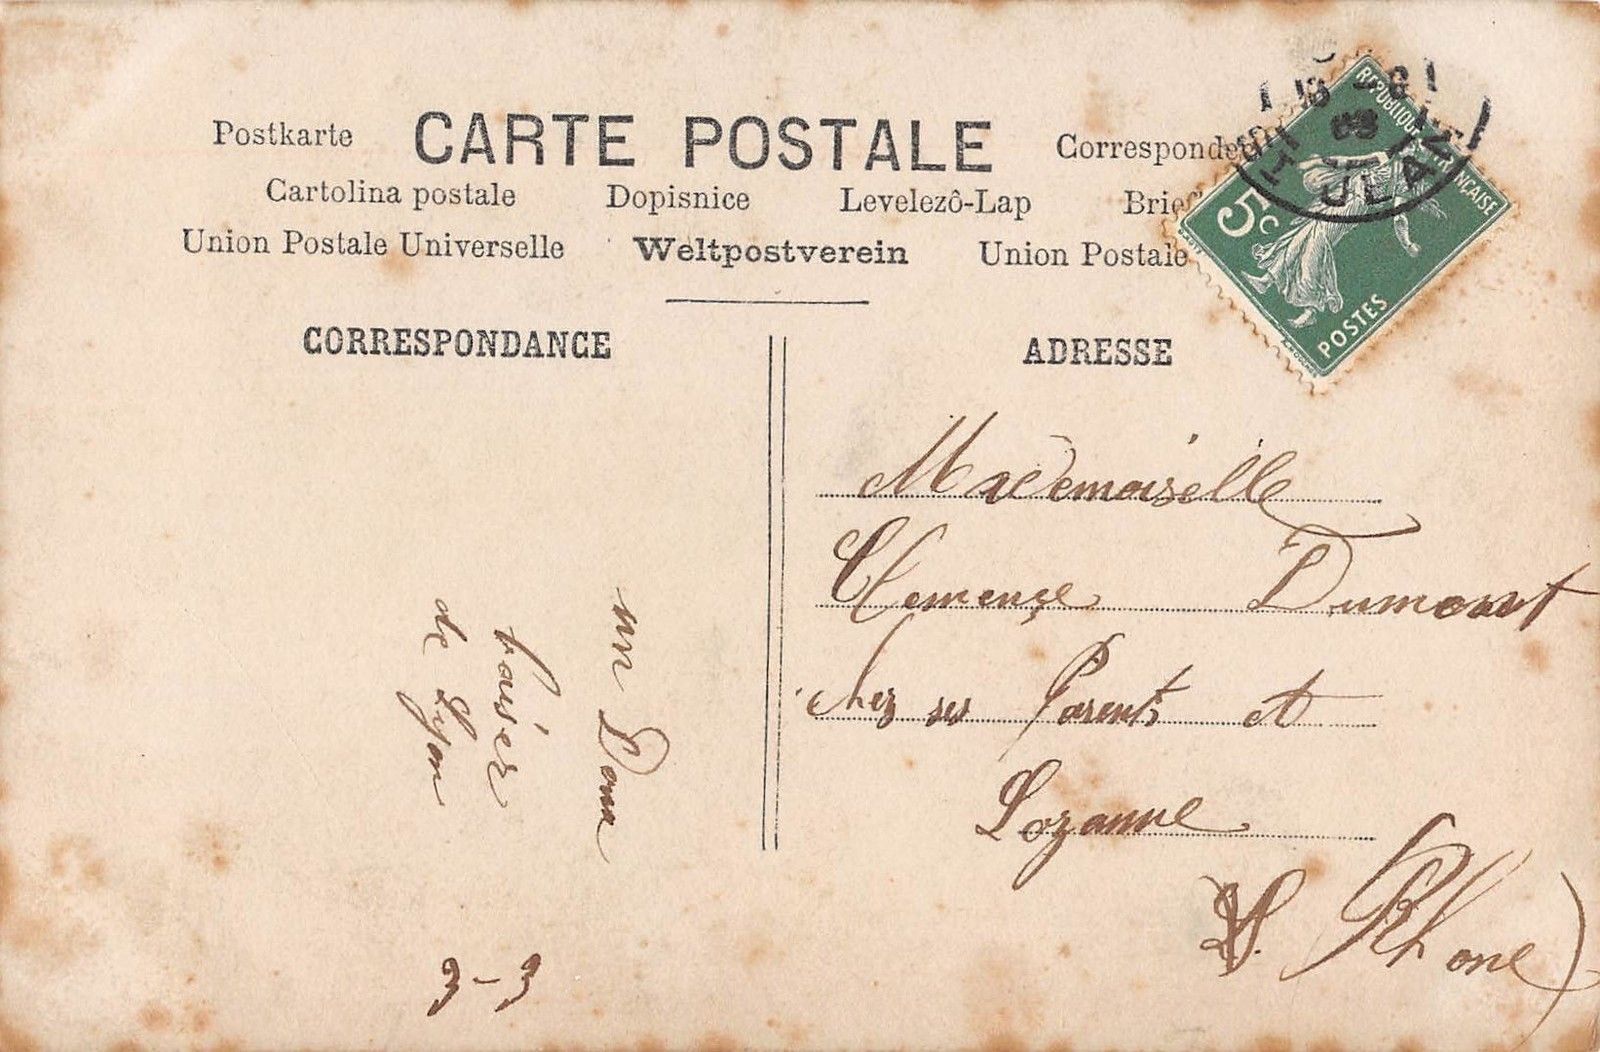 Postkarte CARTE POSTALE
Cartolina postale Dopisnice Levelezô-Lap
Union Postale Universelle Weltpostverein Union Postale
CORRESPONDANCE
un Doux
baiser
de Lyon
3-3
ADRESSE
Mademoiselle
Clemence Dumont
chez ses Parents et
Lozanne
Rhone)
REPUBLIQUE FRANÇAISE
5c
POSTES